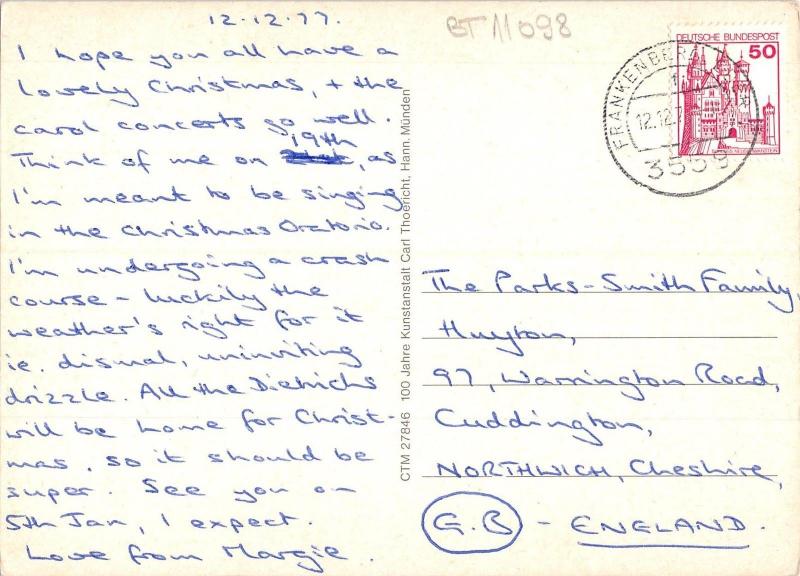 12.12.77.
I hope you all have a
lovely Christmas, + the
carol concerts go well.
19th
Think of me on , as
I'm meant to be singing
in the Christmas Oratorio.
I'm undergoing a crash
course - luckily the
weather's right for it
ie. dismal, uninviting
drizzle. All the Dietrichs
will be home for Christ-
mas, so it should be
super. See you on
5th Jan, I expect.
Love from Margie.
CTM 27846 100 Jahre Kunstanstalt Carl Thoericht, Hann. Münden
BT 11098
DEUTSCHE BUNDESPOST
50
FRANKENBERG
12.12.7
3559
The Parks-Smith Family,
Huyton,
97, Warrington Road,
Cuddington,
NORTHWICH, Cheshire,
G.B - ENGLAND.